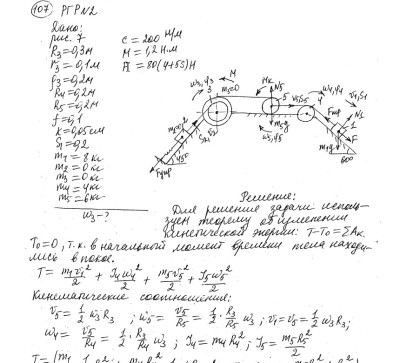 107 РГР N2
Дано:
рис. 7
R3=0,3м
r3=0,1м
ρ3=0,2м
R4=0,2м
R5=0,2м
f=0,1
k=0,05см
S1=0,2
m1=8кг
m2=0кг
m3=0кг
m4=4кг
m5=6кг
ω3-?
c=200 Н/м
M=1,2Н.м
F=80(4+5S)Н
Решение:
Для решения задачи исполь-
зуем теорему об изменении
кинетической энергии: T-T0=ΣAк.
T0=0, т.к. в начальный момент времени тела находи-
лись в покое.
T= m1v1²/2 + J4ω4²/2 + m5v5²/2 + J5ω5²/2
Кинематические соотношения:
v5=1/2 ω3R3; ω5=v5/R5=1/2·R3/R5 ω3; v1=v5=1/2 ω3R3;
ω4=v5/R4=1/2·R3/R4 ω3; J4=m4R4²; J5=m5R5²/2